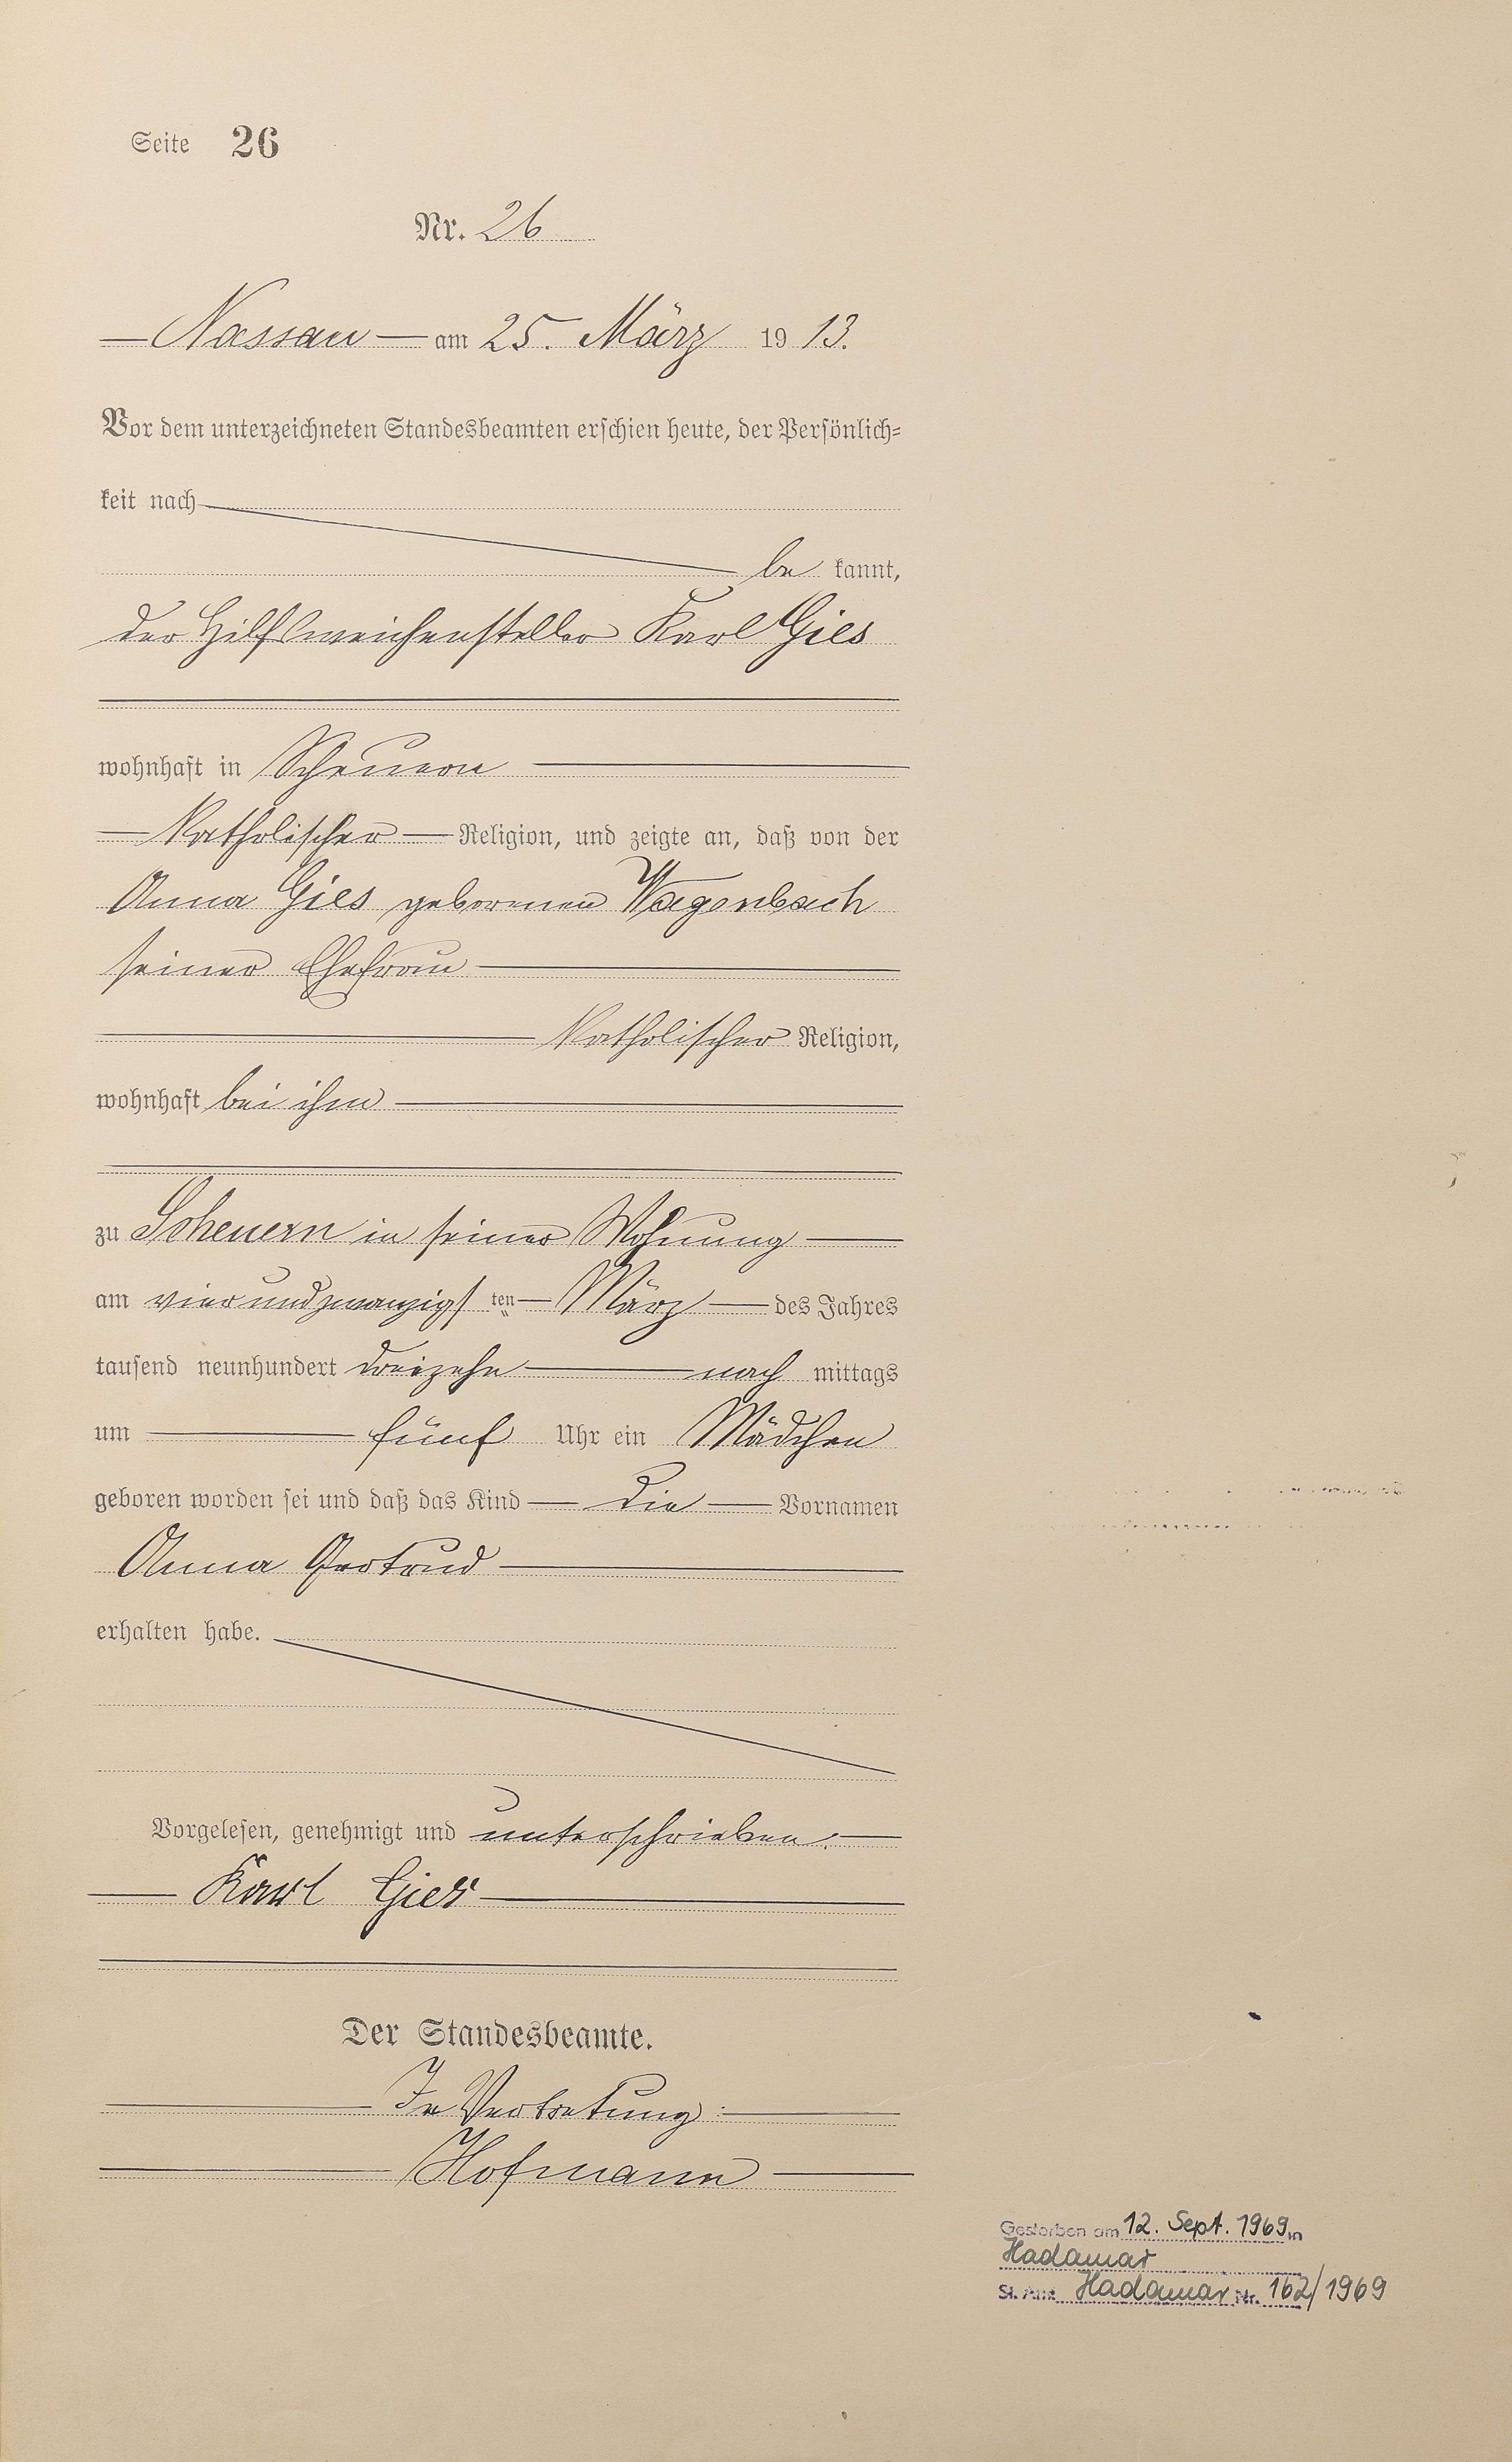 Seite 26
Nr. 26
Nassau am 25. März 1913.
Vor dem unterzeichneten Standesbeamten erschien heute, der Persönlich=
keit nach
be kannt,
der Hilfsweichensteller Karl Gies
wohnhaft in Scheuern
katholischer Religion, und zeigte an, daß von der
Anna Gies geborenen Wagenbach
seiner Ehefrau
katholischer Religion,
wohnhaft bei ihm
zu Scheuern in seiner Wohnung
am vierundzwanzigsten März des Jahres
tausend neunhundert dreizehn nachmittags
um fünf Uhr ein Mädchen
geboren worden sei und daß das Kind die Vornamen
Anna Gertrud
erhalten habe.
Vorgelesen, genehmigt und unterschrieben.
Karl Gies
Der Standesbeamte.
In Vertretung:
Hofmann
Gestorben am 12. Sept. 1969 in
Hadamar
St. Amt Hadamar Nr. 162/1969